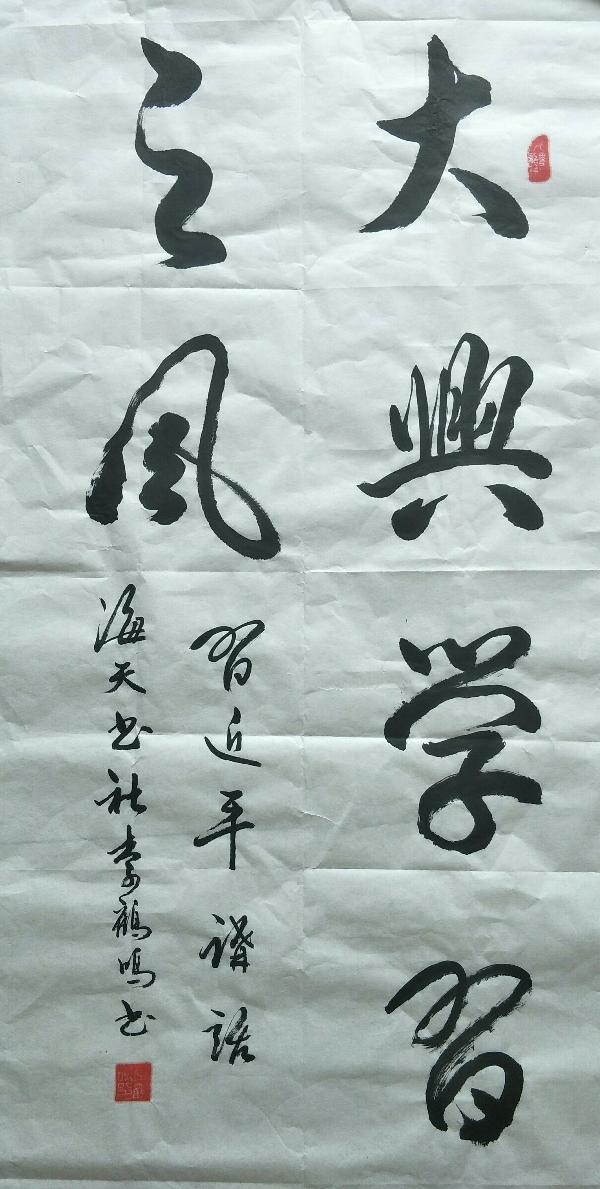 大興学習
之風
習近平講話
海天书社李鶴鳴书